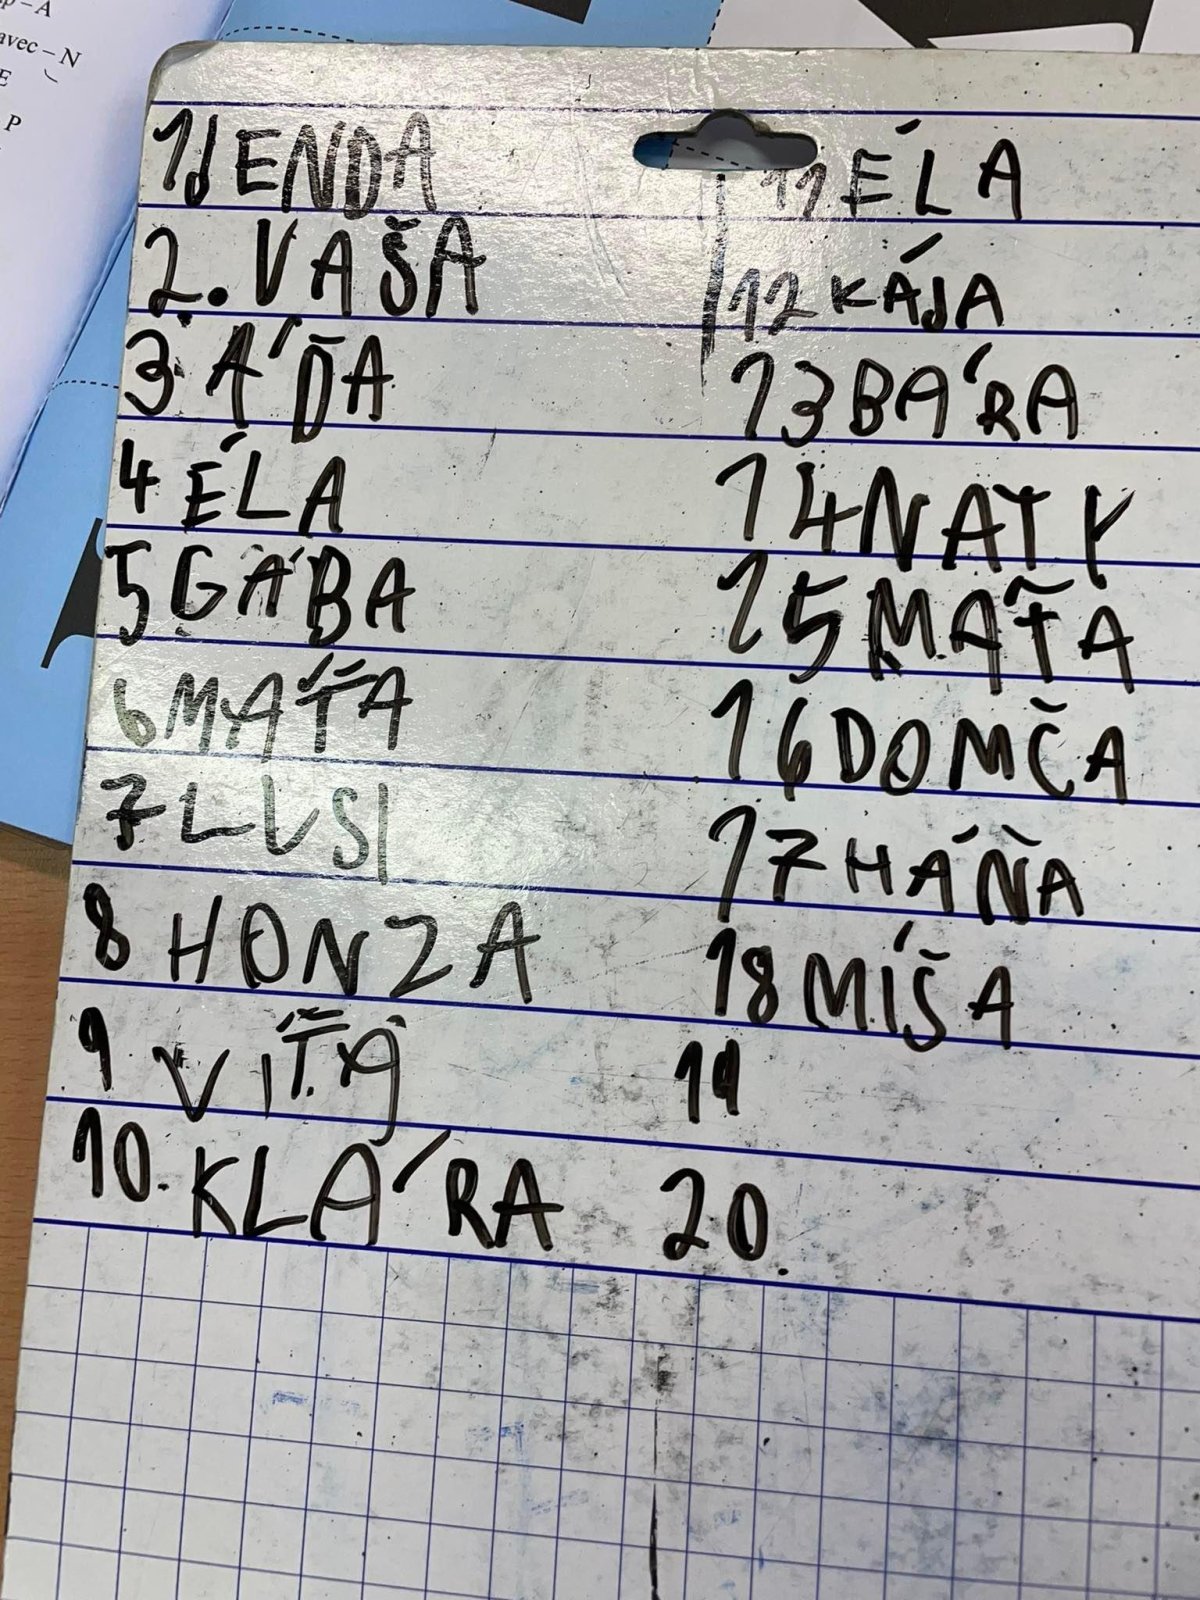 p – A
avec – N
E
P
1 JENDA
2. VAŠA
3. ÁĎA
4 ÉLA
5 GÁBA
6 MAŤA
7 LUSI
8 HONZA
9 VÍŤA
10. KLÁRA
11 ÉLA
12 KÁJA
13 BÁRA
14 NATY
15 MAŤA
16 DOMČA
17 HÁŇA
18 MÍŠA
19
20.